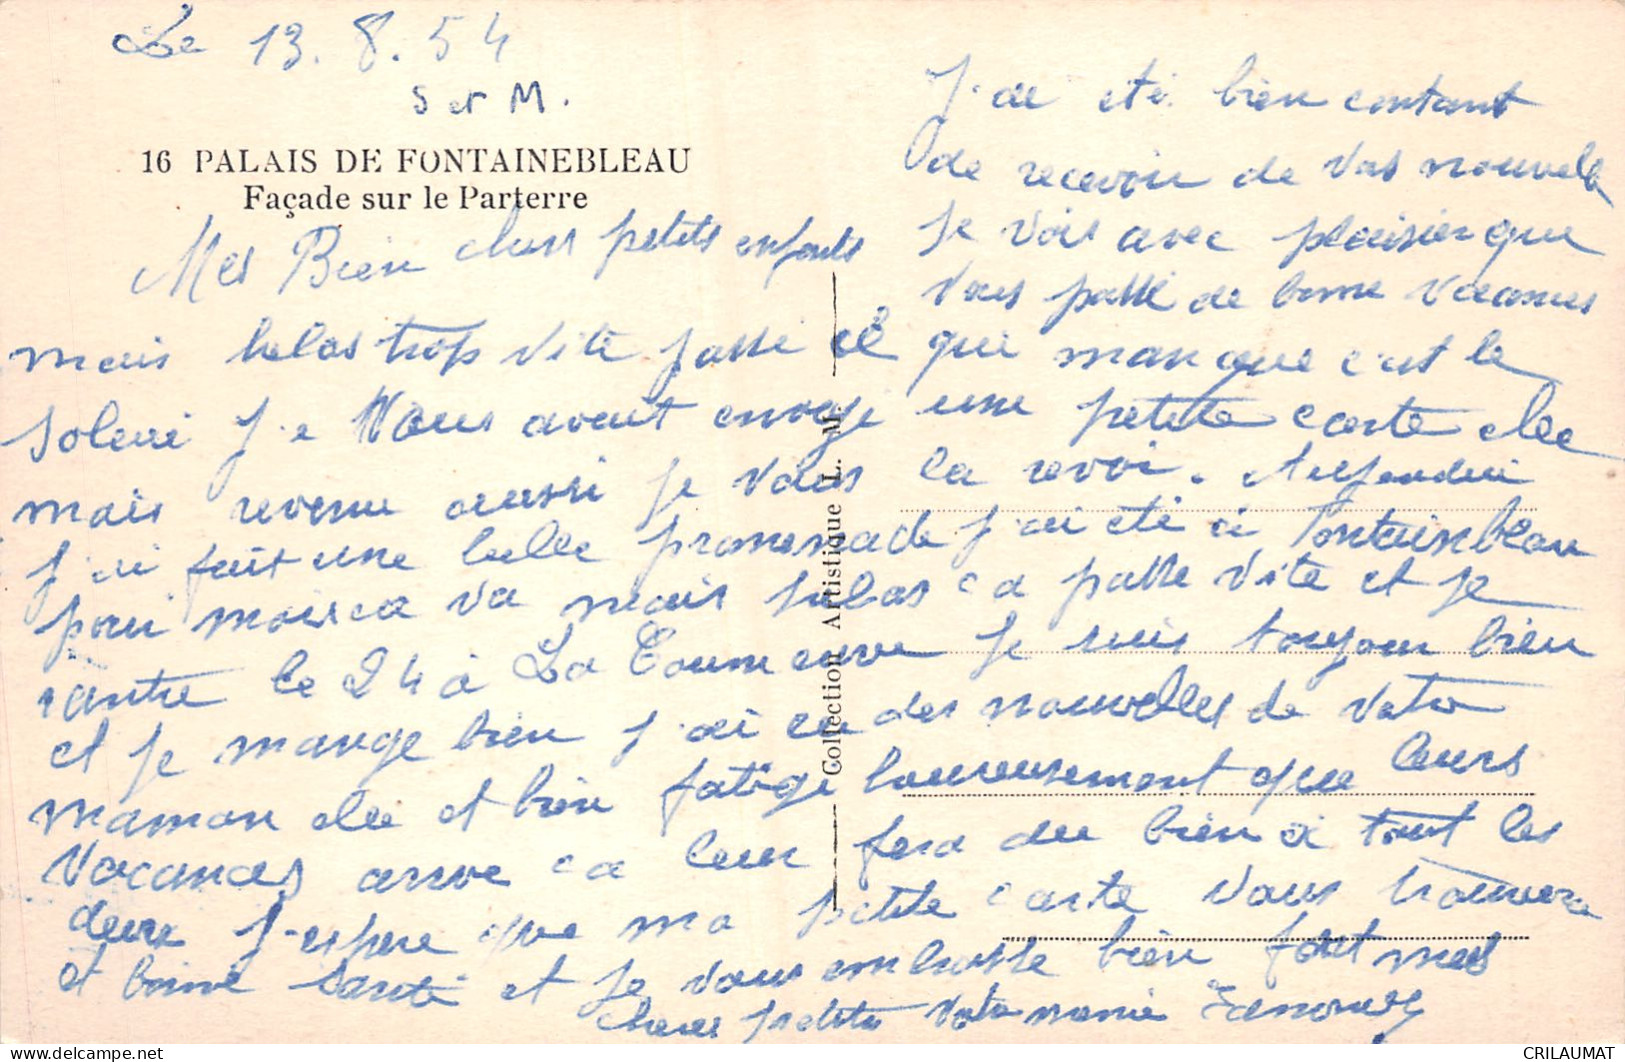 Le 13.8.54
S et M.
16 PALAIS DE FONTAINEBLEAU
Façade sur le Parterre
Mes Bien chers petits enfants
J'ai eté bien contant
de recevoir de vos nouvelle
je vois avec plaisier que
vous passé de bonne vacances
mais helas trop vite passé ce qui manque c'est le
soleui je Vous avait envoyé une petite carte elle
mais revenu aussi je vous la revoi. Aujourdui
j'ai fait une belle promenade j'ai eté à Fontainbleau
pour moi ca va mais helas ca passe vite et je
rantre le 24 à La Courneuve je suis toujour bien
et je mange bien j'ai eu des nouvelles de votre
maman elle et bien fatigé heureusement que leurs
vacances arrive ca leur fera du bien à tout les
deux j'espere que ma petite carte vous trouvera
et bonne santé et je vous embrasse bien fort mes
cheres petits votre mamie
Collection Artistique L. M.
CRILAUMAT